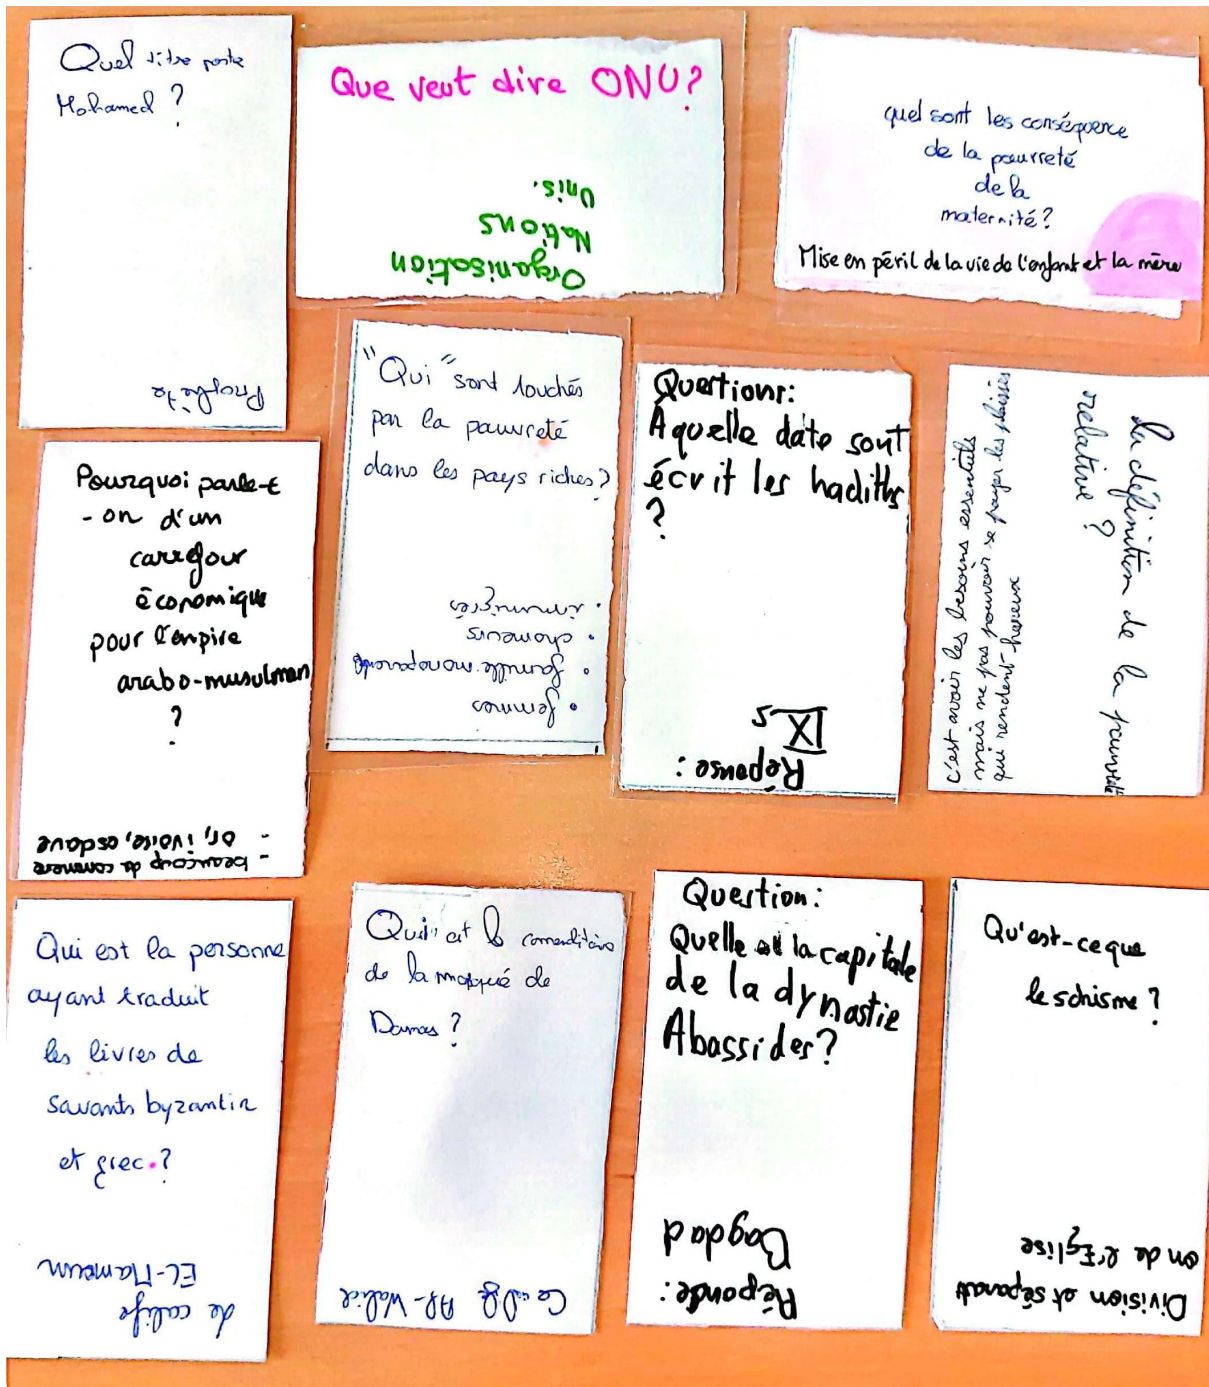 Quel titre porte
Mohamed ?
Prophète
Que veut dire ONU?
Organisation
Nations
Unis.
quel sont les conséquence
de la pauvreté
de la
maternité?
Mise en péril de la vie de l'enfant et la mère
Pourquoi parle-t
-on d'un
carrefour
économique
pour l'empire
arabo-musulman
?
- beaucoup de commerce
- or, ivoire, esclave
"Qui" sont touchés
par la pauvreté
dans les pays riches?
• femmes
• famille monoparentale
• chomeurs
• immigrés
Questions:
À quelle date sont
écrit les hadiths
?
Réponse :
IX s
La définition de la pauvreté
relative ?
c'est avoir les besoins essentiels
mais ne pas pouvoir se payer les plaisirs
qui rendent hereux
Qui est la personne
ayant traduit
les livres de
savants byzantin
et grec.?
le calife
EL-Mamoun
Qui est le comenditaire
de la mosqué de
Damas ?
Calife Al-Walid
Question:
Quelle est la capitale
de la dynastie
Abassides?
Réponse:
Bagdad
Qu'est-ce que
le schisme ?
Division et séparati
on de l'Église